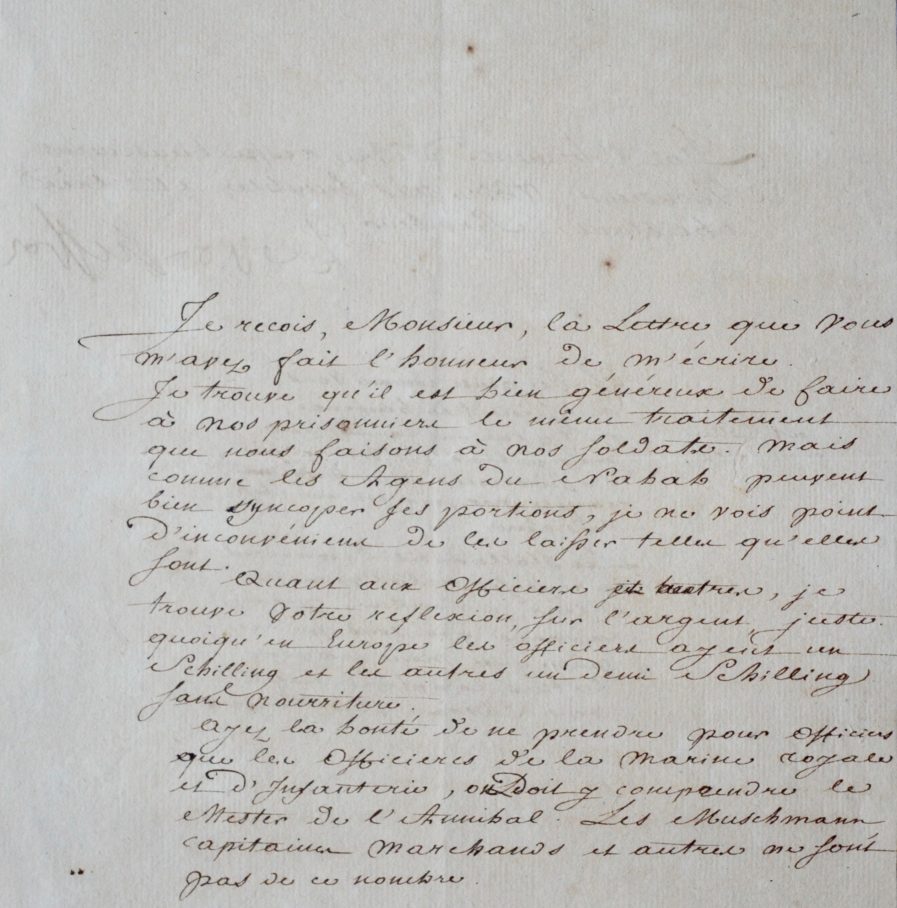 Je recois, Monsieur, la Lettre que vous
m'avez fait l'honneur de m'écrire.
Je trouve qu'il est bien généreux de faire
à nos prisonniers le même traitement
que nous faisons à nos soldats. Mais
comme les Agens du Nabab peuvent
bien syncoper ses portions, je ne vois point
d'inconvéniens de les laisser telles qu'elles
sont.
Quant aux officiers et autres, je
trouve votre reflexion, sur l'argent, juste.
quoiqu'en Europe les officiers ayent un
Schilling et les autres un demi Schilling
sans nourriture.
Ayez la bonté de ne prendre pour officiers
que les officiers de la marine royale
et d'Infanterie, on Doit y comprendre le
Mester de l'Annibal. Les Muschmann
capitaines marchands et autres ne sont
pas de ce nombre.